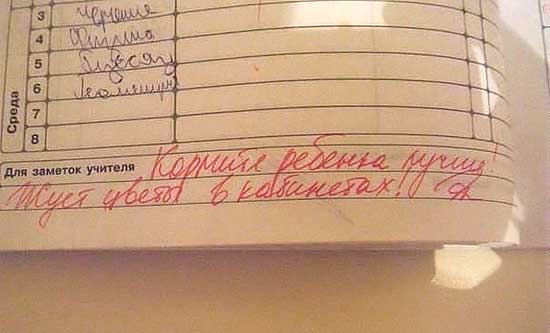 Среда
3 Черчение
4
5
6 Геометрия
7
8
Для заметок учителя Кормите ребенка лучше!
Жует цветы в кабинетах!